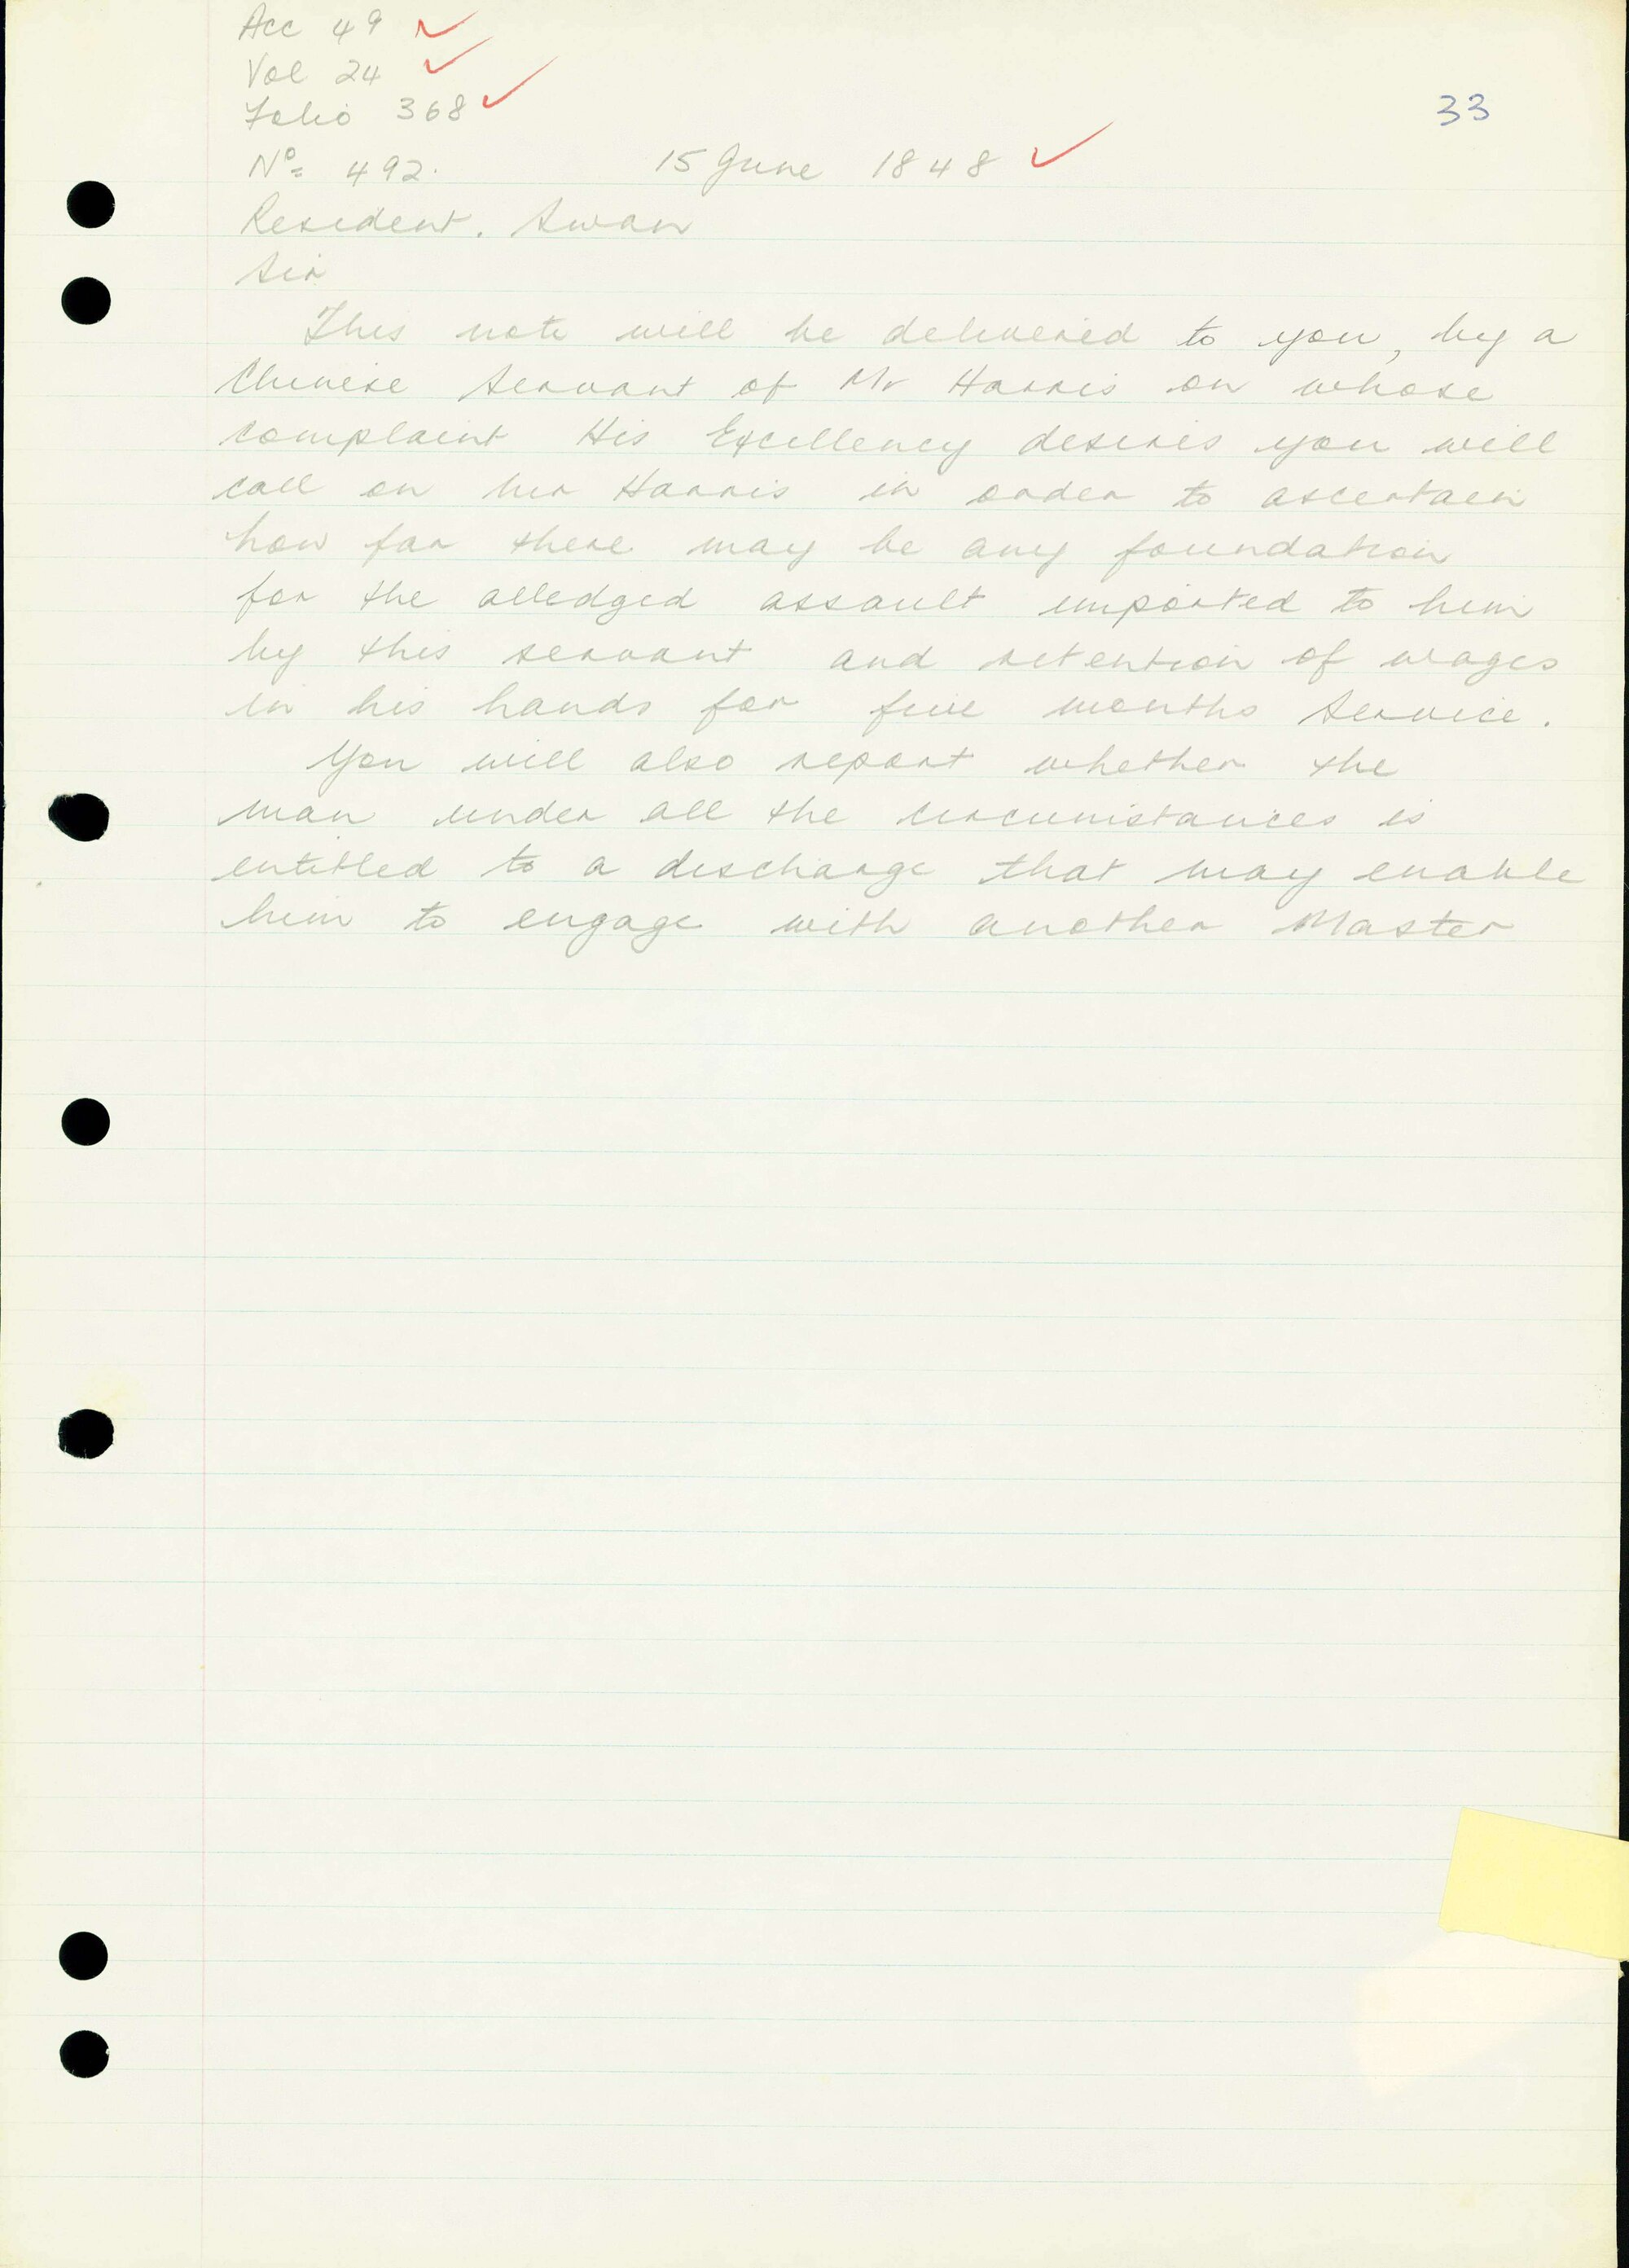 Acc 49
Vol 24
Folio 368
33
Nº 492. 15 June 1848
Resident. Swan
Sir
This note will be delivered to you, by a
Chinese Servant of Mr Harris on whose
complaint His Excellency desires you will
call on Mr Harris in order to ascertain
how far there may be any foundation
for the alledged assault imported to him
by this servant and retention of wages
in his hands for five months Service.
You will also report whether the
man under all the circumstances is
entitled to a discharge that may enable
him to engage with another Master